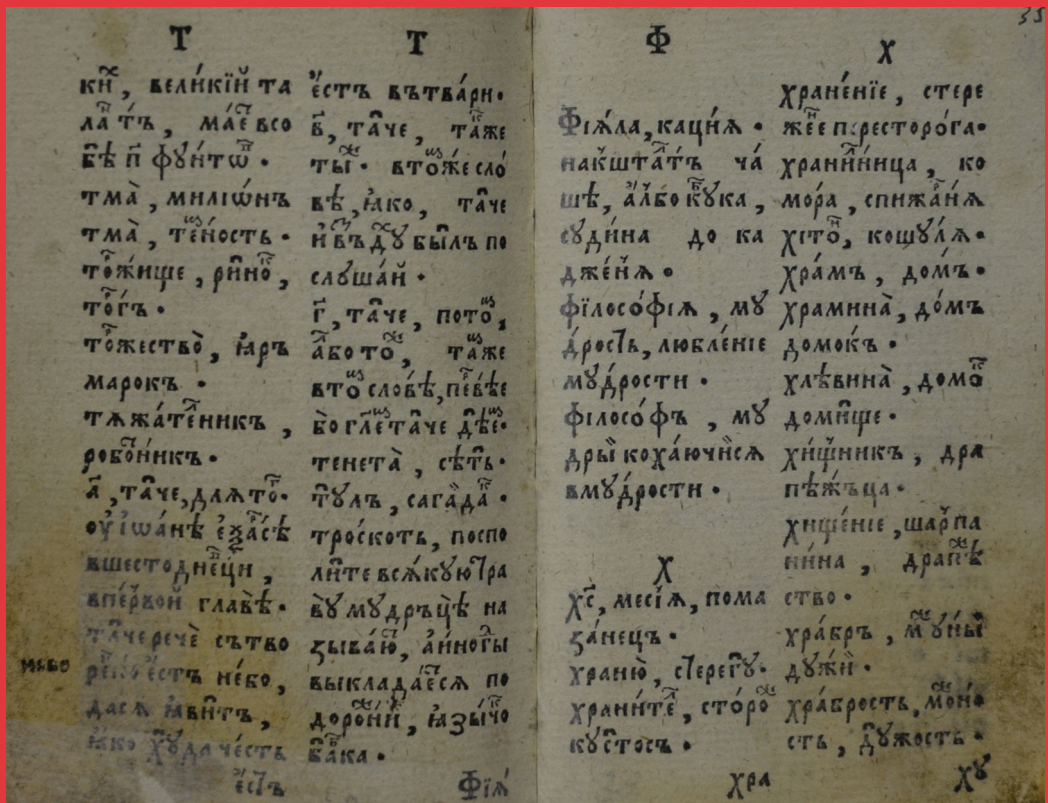 Т
ки, вели́кїй та
ла́тъ, ма́е всо
бѣ фу́нтѡ.
тма̀, милиѡ́нъ
тма̀, те́ность.
то́жище, ри́но,
то́гъ.
то́жество̀, ꙗ́ръ
марокъ.
тѧжа́тенникъ,
робо́никъ.
а҃, та́че, для то́.
оу҆ іѡа́нѣ
вшестодне́ци,
впе́рвой главѣ̀.
та́че речѐ сътво
не́бо,
ꙗ҆ви́тъ,
ꙗ҆́ко че́сть
е҆́стъ
Т
е҆́стъ вътва́ри.
в҃, та́че, та́же
ты́. вто́же сло́
вѣ, ꙗ҆́ко, таче
бы́лъ по
слуша́й.
г҃, та́че, пото́,
а҆́бо то́, та́же
вто словѣ́,
та́че
тенета̀, сѣ́ть.
ту́лъ, сагада́.
тро́скотъ, поспо
ли́те всѧ́кую тра
ву̀ му́дръцѣ на
зыва́ю, а҆нногды
выклада́етсѧ по
доро́ни, ꙗ҆зы́чо
ба́ка.
Фїѧ́
Ф
Фїѧ́ла, каці́ѧ.
накшта́лтъ ча́
шѣ, а҆́лбо ку́ка,
суди́на до ка
дже́нѧ.
фїлосо́фїѧ, му́
дрость, любле́нїе
му́дрости.
фїлосо́фъ, му́
дры̀ коха́ючисѧ
вму́дрости.
Х
хс҃, месі́ѧ, пома
за́нецъ.
храню̀, стерегу̀.
храни́те, сто́ро
ку́стосъ.
хра
35
Х
хране́нїе, стере
же́нїе пересторо́га.
храни́лница, ко
мо́ра, спижа́рнѧ
хїто́, кошу́лѧ.
хра́мъ, до́мъ.
храмина̀, до́мъ
домо́къ.
хлѣ́вина̀, домо́
доми́ще.
хи́щникъ, дра
пѣ́жъца.
хище́нїе, ша́рпа
ни́на, драпѣ́
ство.
хра́бръ, му́жны
ду́жи.
хра́брость, мо́но
сть, ду́жость.
ху́